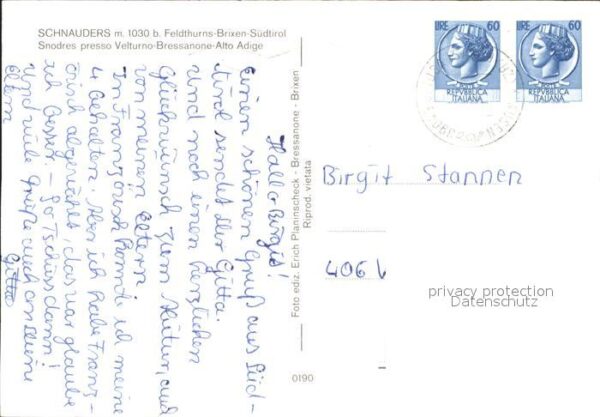 SCHNAUDERS m. 1030 b. Feldthurns-Brixen-Südtirol
Snodres presso Velturno-Bressanone-Alto Adige
Hallo Birgit!
Einen schönen Gruß aus Süd-
tirol sendet dir Gitta.
Und noch einen herzlichen
Glückwunsch zum Abitur, auch
von meinen Eltern.
In Französisch konnte ich meine
4 behalten. Aber ich habe Franz-
ösisch abgewählt, das war glaube
ich besser. – So Tschüss dann!
Und viele Grüße auch an Deine
Eltern
Gitta
Foto ediz. Erich Planinscheck - Bressanone - Brixen
Riprod. vietata
0190
LIRE 60
POSTE
REPVBBLICA
ITALIANA
LIRE 60
POSTE
REPVBBLICA
ITALIANA
Birgit Stannen
406
privacy protection
Datenschutz